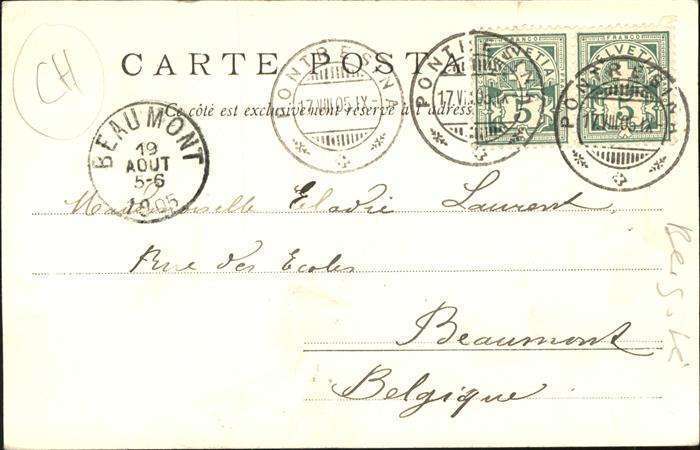 CH
CARTE POSTALE
Ce côté est exclusivement réservé à l'adresse
PONTRESINA
17.VIII.05.IX-
PONTRESINA
17.VIII.05.IX
PONTRESINA
17.VIII.05.IX
FRANCO
HELVETIA
5
FRANCO
HELVETIA
5
BEAUMONT
19
AOUT
5-6
1905
Mademoiselle Eladie Laurent
Rue des Ecoles
Beaumont
Belgique